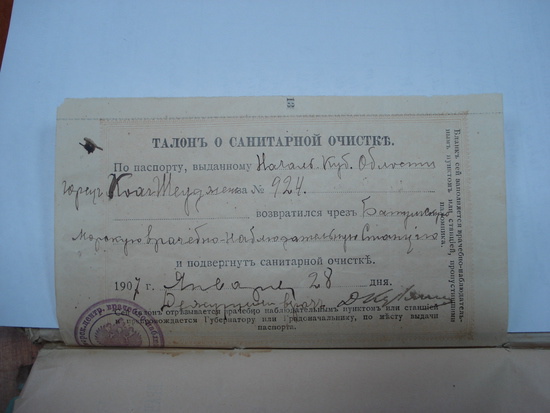 ТАЛОНЪ О САНИТАРНОЙ ОЧИСТКѢ.
По паспорту, выданному Началь. Куб. Области
за № 924.
возвратился чрезъ Батумскую
Морскую врачебно-наблюдательную станцію
и подвергнутъ санитарной очисткѣ.
1907 г. Января 28 дня.
Сей талонъ отрѣзывается врачебно наблюдательнымъ пунктомъ или станціей
и препровождается Губернатору или Градоначальнику, по мѣсту выдачи
паспорта.
Бланкъ сей наполняется врачебно-наблюдатель-
нымъ пунктомъ или станціей, пропустившими
паломника.